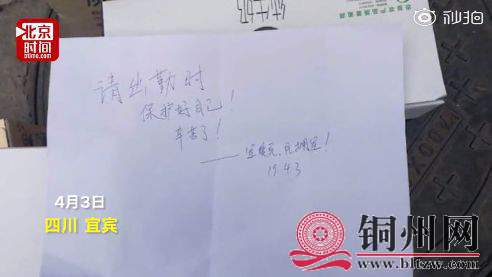 北京时间
btime.com
秒拍
请出勤时
保护好自己!
辛苦了!
1943
4月3日
四川 宜宾
铜州网
www.bltzw.com